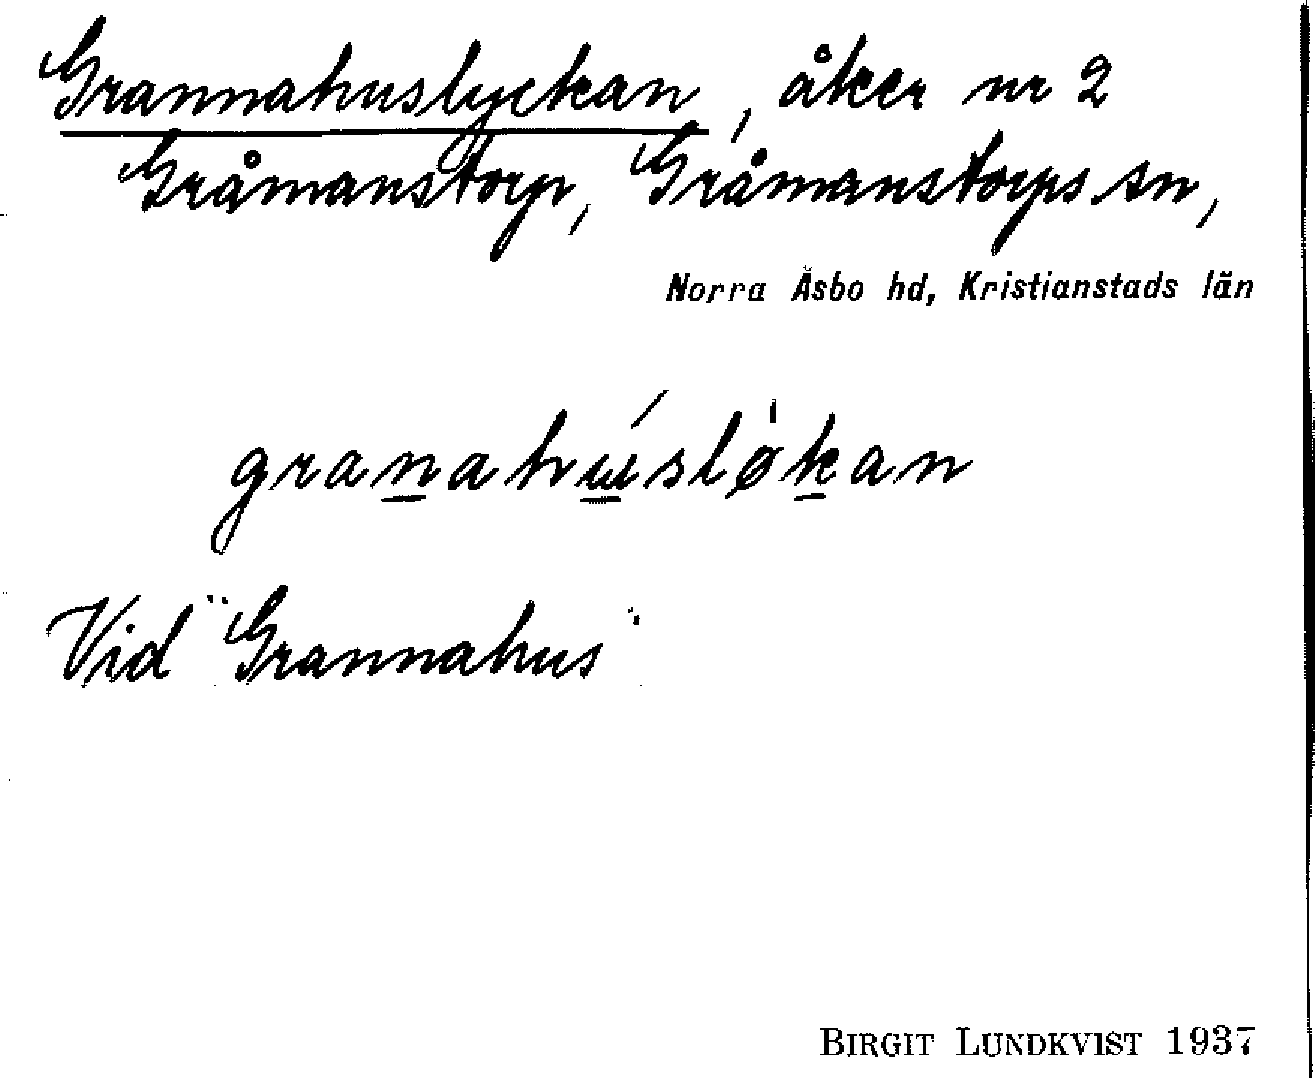 Grannahuslyckan, åker nr 2
Gråmanstorp, Gråmanstorps sn,
Norra Åsbo hd, Kristianstads län
granahɯ́sløkan
Vid "Grannahus"
BIRGIT LUNDKVIST 1937